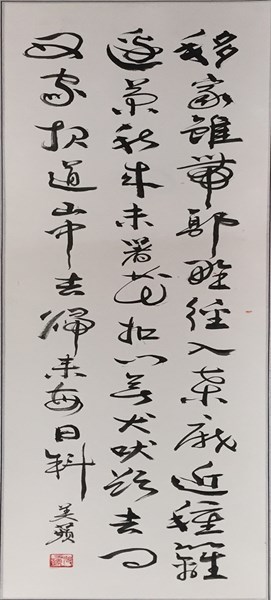 移家雖帶郭野徑入桑麻近種籬
邊菊秋來未著花扣門無犬吠欲去問
西家報道山中去歸來每日斜
美蘋